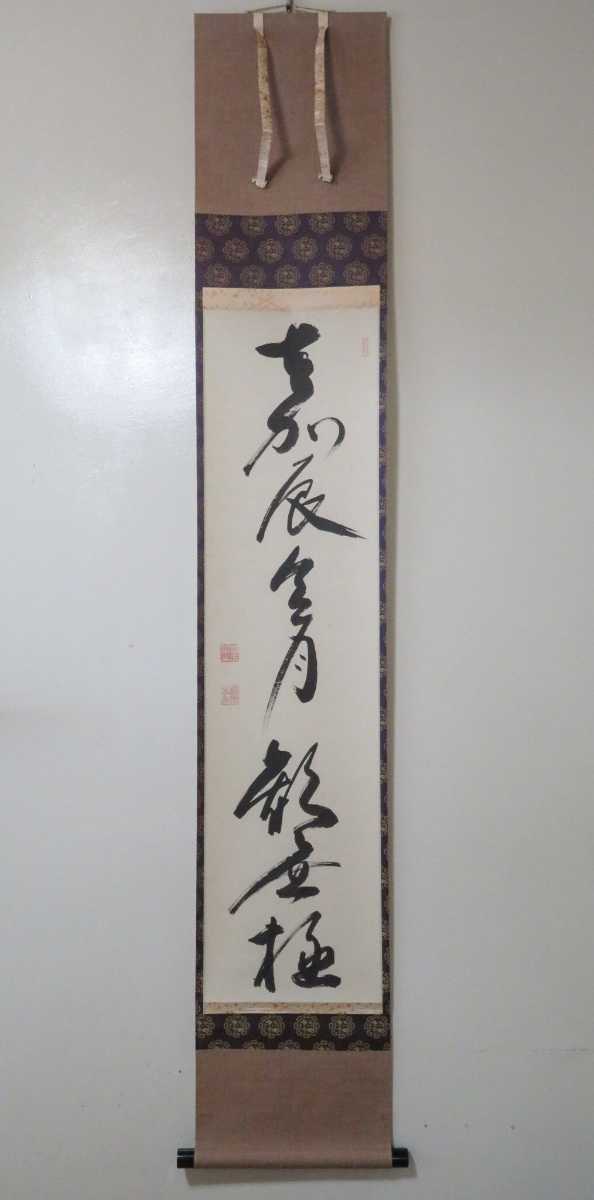 嘉辰令月歓無極